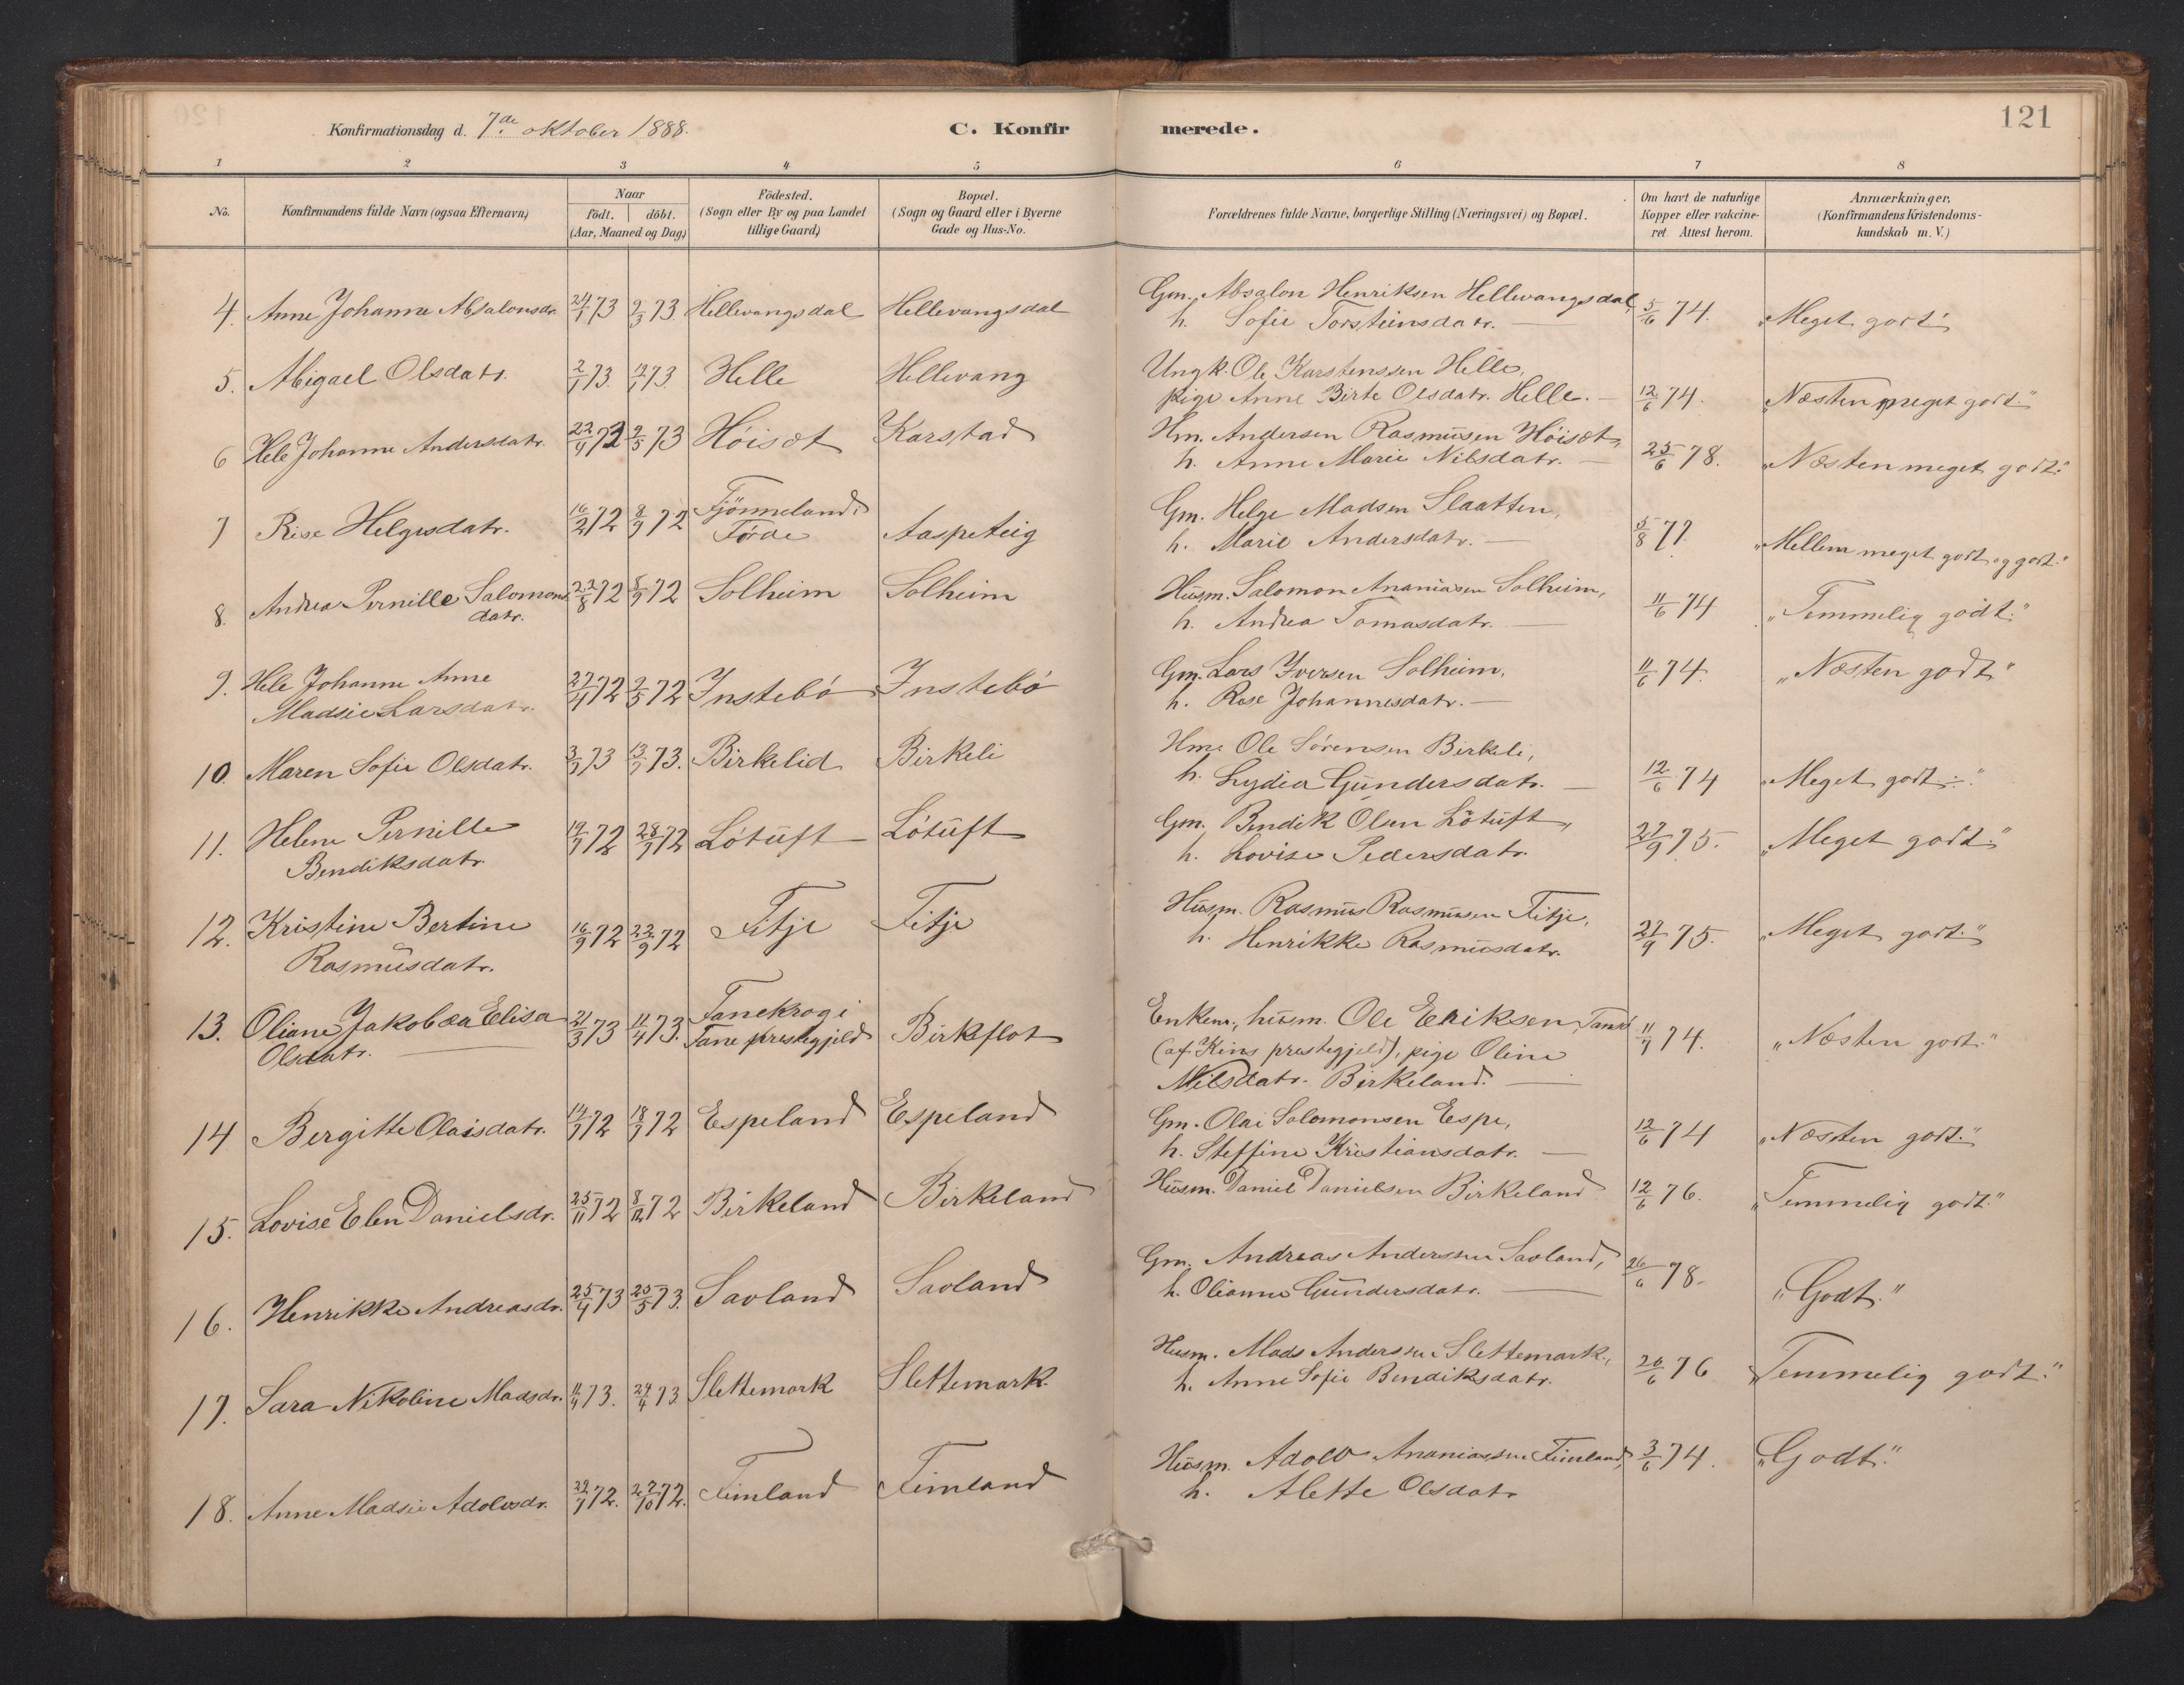 121
Konfirmationsdag d. 7de oktober 1888.
C. Konfirmerede.
1 2 3 4 5 6 7 8
No.
Konfirmandens fulde Navn (ogsaa Efternavn)
Naar
födt. döbt.
(Aar, Maaned og Dag)
Födested.
(Sogn eller By og paa Landet
tillige Gaard)
Bopæl.
(Sogn og Gaard eller i Byerne
Gade og Hus-No.
Forældrenes fulde Navne, borgerlige Stilling (Næringsvei) og Bopæl.
Om havt de naturlige
Kopper eller vakcine-
ret. Attest herom.
Anmærkninger,
(Konfirmandens Kristendoms-
kundskab m. V.)
4. Anne Johanne Absalonsdr. 24/1 73 2/3 73. Hellevangsdal Hellevangsdal
Gm. Absalon Henriksen Hellevangsdal,
h. Sofie Torsteinsdatr. — 5/6 74. "Meget godt"
5. Abigael Olsdatr. 2/1 73. 73. Helle Hellevang
Ungk. Ole Karstenssen Helle,
pige Anne Birte Olsdatr. Helle. — 12/6 74. "Næsten meget godt."
6 Hele Johanne Andersdatr. 73 Höisæt Karstad
Hm. Andersen Rasmusen Höisæt,
h. Anne Marie Nilsdatr. — 25/6 78. "Næsten meget godt."
7 Rise Helgesdatr. 16/2 72 8/9 72 Fjönneland i
Förde Aaspeteig
Gm. Helge Madsen Slaatten,
h. Marie Andersdatr. — 5/8 77. "Mellem meget godt og godt."
8. Andrea Pernille Salomons
datr. 22/8 72 8/9 72 Solheim Solheim
Husm. Salomon Ananiasen Solheim,
h. Andrea Tomasdatr. — 11/6 74 "Temmelig godt."
9. Hele Johanne Anne
Madsie Larsdatr. 72 72 Instebö Instebö
Gm. Lars Iversen Solheim,
h. Rise Johannesdatr. — 11/6 74. "Næsten godt"
10. Maren Sofie Olsdatr. 73 73. Birkelid Birkeli
Hm. Ole Sörensen Birkeli,
h. Lydia Gundersdatr. — 12/6 74 "Meget godt ÷."
11. Helene Pernille
Bendiksdatr. 72 72 Lötuft Lötuft
Gm. Bendik Olsen Lötuft,
h. Lovise Pedersdatr. 27/9 75. "Meget godt."
12. Kristine Bertine
Rasmusdatr. 16/9 72 22/9 72 Fitje Fitje
Husm. Rasmus Rasmusen Fitje,
h. Henrikke Rasmusdatr. 27/9 75. "Meget godt."
13. Oliane Jakobæa Elisa
Olsdatr. — 21/3 73 11/4 73. Tanekrog i
Tane prestegjeld Birkeflot
Enkem., husm. Ole Eriksen,
(af Kins prestegjeld), pige Oline
Nilsdatr. Birkeland. — 74. "Næsten godt."
14 Bergitte Olaisdatr. 72 72 Espeland Espeland
Gm. Olai Salomonsen Espe,
h. Steffine Kristiansdatr. — 12/6 74 "Næsten godt."
15. Lovise Elen Danielsdr. 25/11 72 8/12 72 Birkeland Birkeland
Husm. Daniel Danielsen Birkeland 12/6 76. "Temmelig godt."
16. Henrikke Andreasdr. 25/4 73 25/5 73. Savland Savland
Gm. Andreas Anderssen Savland,
h. Olianne Gundersdatr. — 26/6 78. "Godt."
17. Sara Nikoline Madsdr. 11/4 73. 24/4 73. Slettemark Slettemark.
Husm. Mads Anderssen Slettemark,
h. Anne Sofie Bendiksdatr. 26/6 76 "Temmelig godt."
18. Anne Madsie Adolvsdr. 72. 27/10 72. Timland Timland
Husm. Adolv Ananiassen Timland, 3/6 74. "Godt."
h. Alette Olsdatr